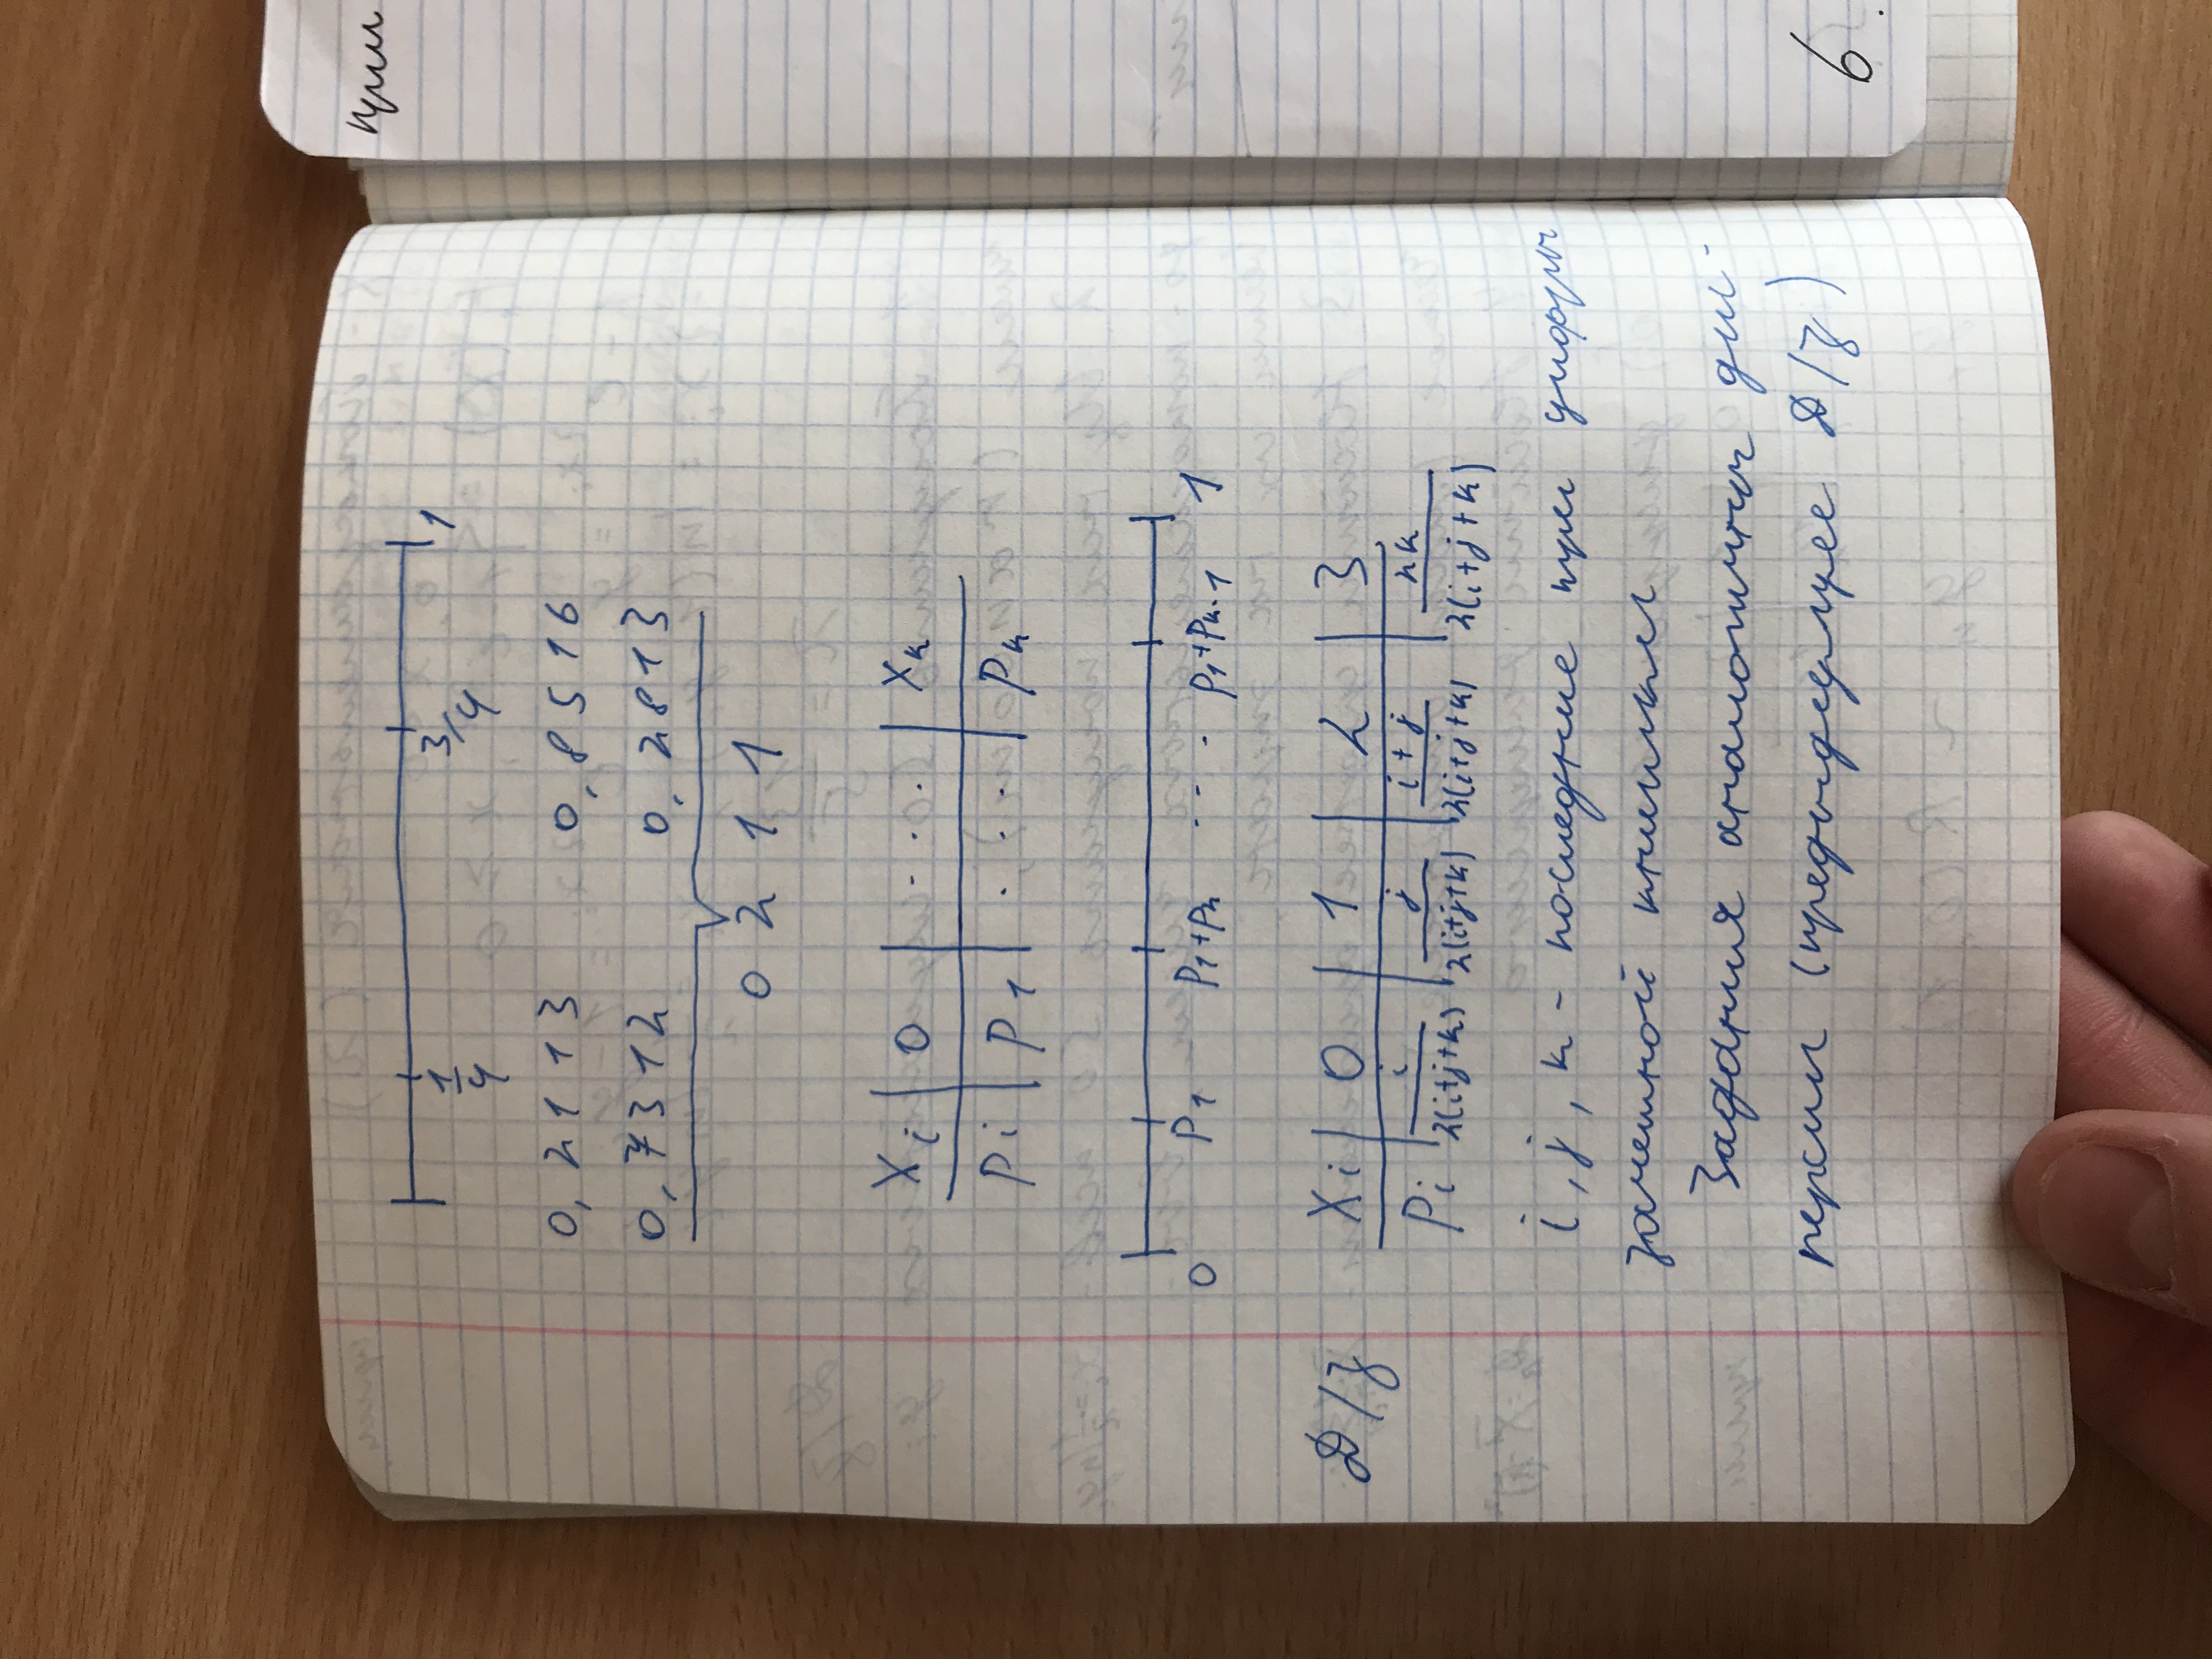 1/4 3/4 1
0,2113 0,8516
0,7312 0,2813
0 2 1 1
Xi | 0 | ... | Xn
Pi | P1 | ... | Pn
0 P1 P1+Pn ... P1+Pn-1 1
Д/з Xi | 0 | 1 | 2 | 3
Pi | i/2(i+j+k) | j/2(i+j+k) | i+j/2(i+j+k) | 2k/2(i+j+k)
i, j, k - последние три цифры
зачетной книжки
Задания аналогичны дис-
персии (предыдущее Д/з)
при
6.